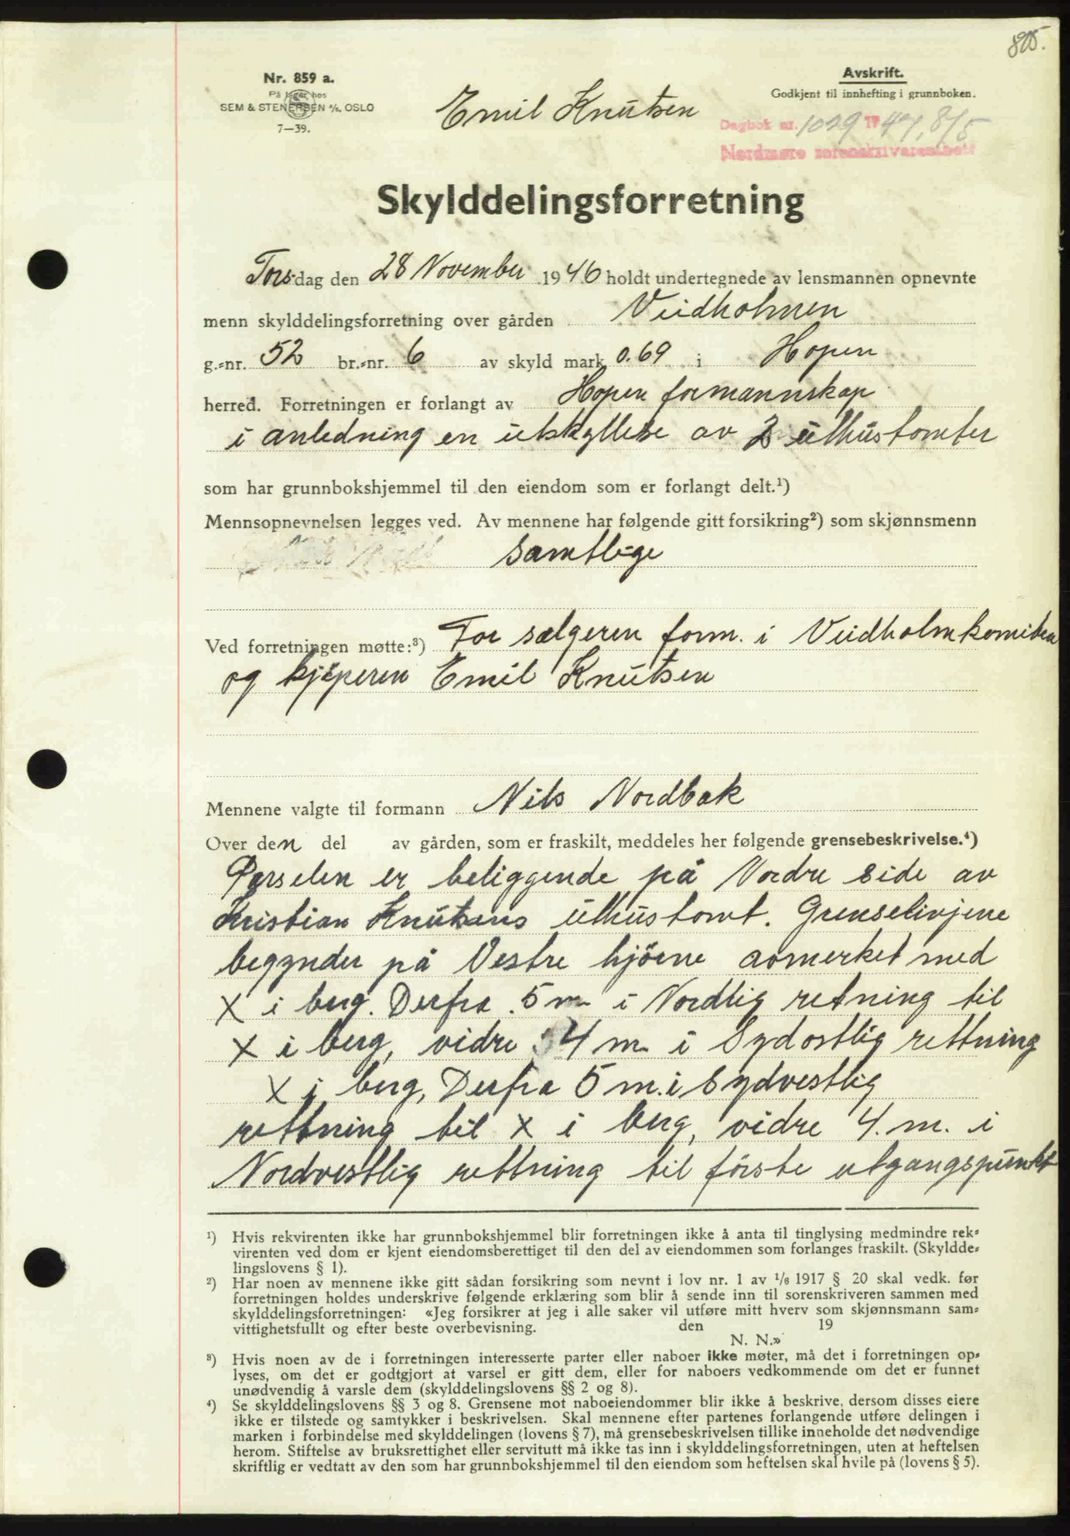 805.
Nr. 859 a.
På lager hos
SEM & STENERSEN A/S, OSLO
7—39.
Emil Knutsen
Avskrift.
Godkjent til innhefting i grunnboken.
Dagbok nr. 1029 1947, 8/5
Nordmøre sorenskriverembete
Skylddelingsforretning
Torsdag den 28 November 1946 holdt undertegnede av lensmannen opnevnte
menn skylddelingsforretning over gården Veidholmen
g.-nr. 52 br.-nr. 6 av skyld mark 0.69 i Hopen
herred. Forretningen er forlangt av Hopen formannskap
i anledning en utskyllelse av 2 uthustomter
som har grunnbokshjemmel til den eiendom som er forlangt delt.¹)
Mennsopnevnelsen legges ved. Av mennene har følgende gitt forsikring²) som skjønnsmenn
Samtlige
Ved forretningen møtte:³) For sælgeren form. i Veidholmkomiteen
og kjøperen Emil Knutsen
Mennene valgte til formann Nils Nordbak
Over den del av gården, som er fraskilt, meddeles her følgende grensebeskrivelse.⁴)
Parselen er beliggende på Nordre side av
Kristian Knutsens uthustomt. Grenselinjene
begynder på Vestre hjörne avmerket med
X i berg. Derfra 5 m i Nordlig retning til
X i berg, vidre 4 m i Sydostlig rettning
X i berg, Derfra 5 m. i Sydvestlig
rettning til X i berg, vidre 4. m. i
Nordvestlig rettning til förste utgangspunkt
¹) Hvis rekvirenten ikke har grunnbokshjemmel blir forretningen ikke å anta til tinglysing medmindre rek-
virenten ved dom er kjent eiendomsberettiget til den del av eiendommen som forlanges fraskilt. (Skyldde-
lingslovens § 1).
²) Har noen av mennene ikke gitt sådan forsikring som nevnt i lov nr. 1 av 1/6 1917 § 20 skal vedk. før
forretningen holdes underskrive følgende erklæring som blir å sende inn til sorenskriveren sammen med
skylddelingsforretningen: «Jeg forsikrer at jeg i alle saker vil utføre mitt hverv som skjønnsmann sam-
vittighetsfullt og efter beste overbevisning. den 19
N. N.»
³) Hvis noen av de i forretningen interesserte parter eller naboer ikke møter, må det i forretningen op-
lyses, om det er godtgjort at varsel er gitt dem, eller for naboers vedkommende om det er funnet
unødvendig å varsle dem (skylddelingslovens §§ 2 og 8).
⁴) Se skylddelingslovens §§ 3 og 8. Grensene mot naboeiendommer blir ikke å beskrive, dersom disses eiere
ikke er tilstede og samtykker i beskrivelsen. Skal mennene efter partenes forlangende utføre delingen i
marken i forbindelse med skylddelingen (lovens § 7), må grensebeskrivelsen tillike inneholde det nødvendige
herom. Stiftelse av bruksrettighet eller servitutt må ikke tas inn i skylddelingsforretningen, uten at heftelsen
skriftlig er vedtatt av den som har grunnbokshjemmel til den eiendom som heftelsen skal hvile på (lovens § 5).